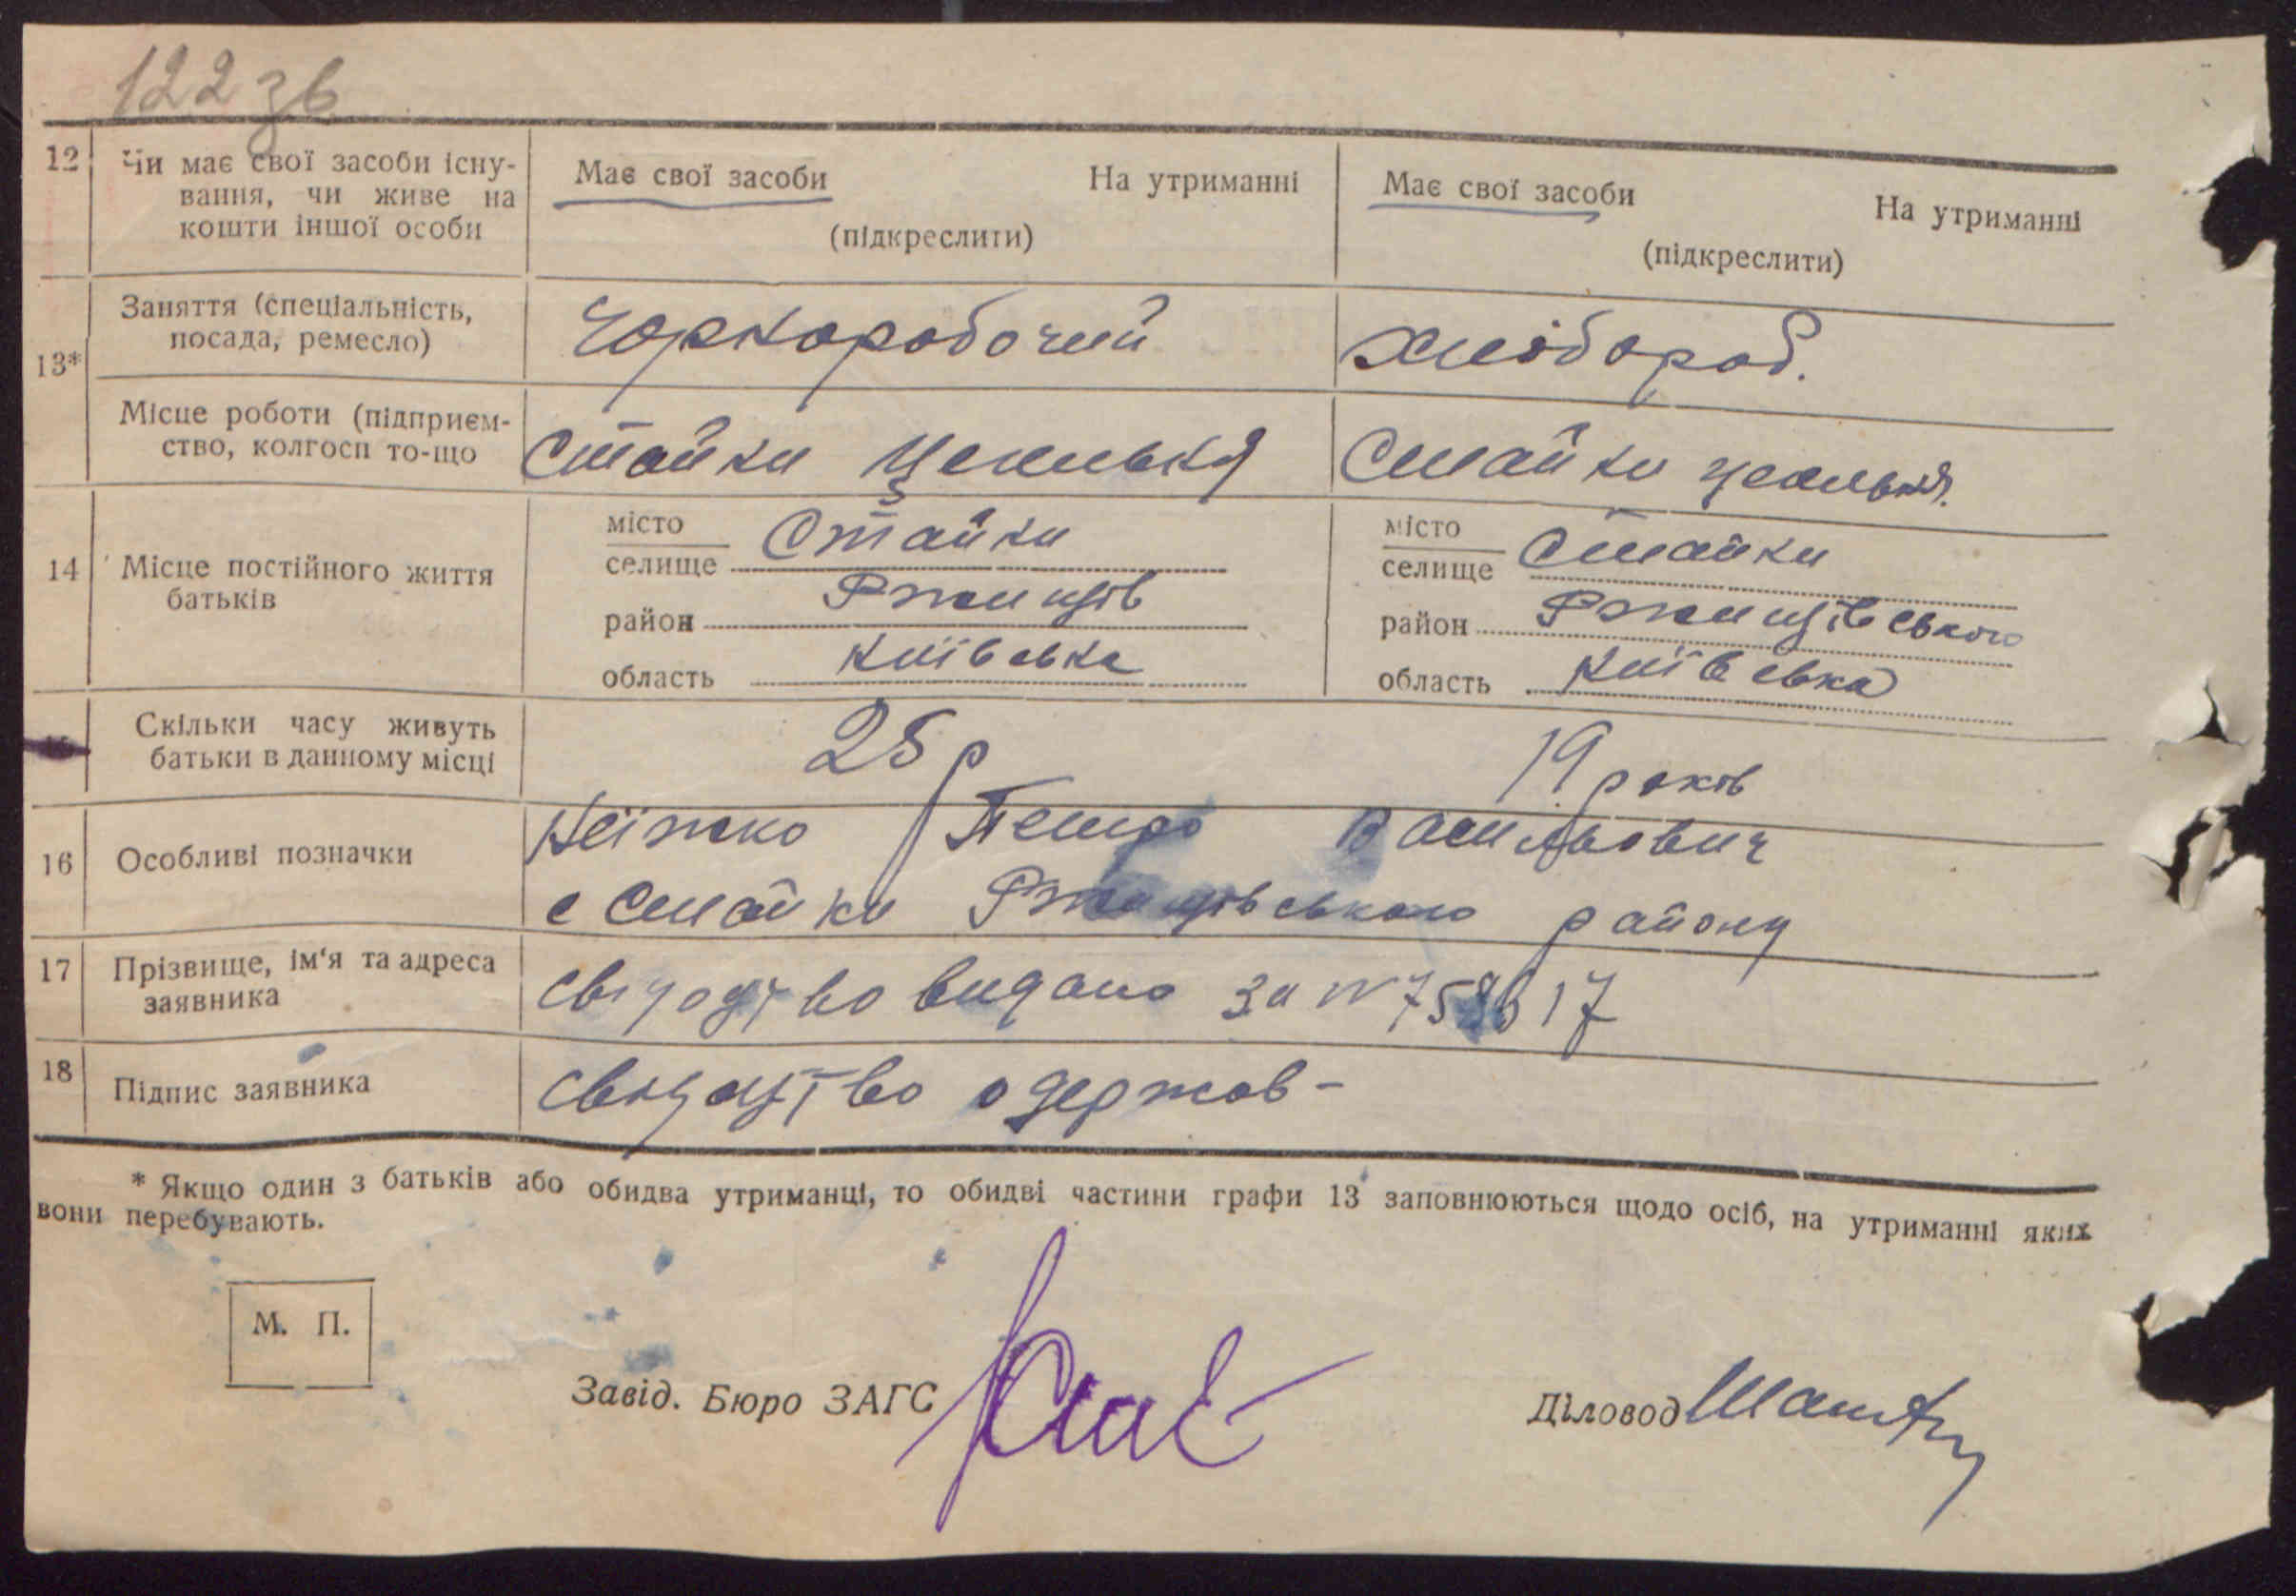 122 зв
12 Чи має свої засоби існу-
вання, чи живе на
кошти іншої особи
Має свої засоби На утриманні
(підкреслити)
Має свої засоби На утриманні
(підкреслити)
13*
Заняття (спеціальність,
посада, ремесло)
Чорноробочий
Хлібороб.
Місце роботи (підприєм-
ство, колгосп то-що
Стайки
Стайки
14 Місце постійного життя
батьків
місто
селище Стайки
район Ржищів
область Київська
місто
селище Стайки
район Ржищівського
область Київська
Скільки часу живуть
батьки в данному місці
25 р
19 років
16 Особливі позначки
Петро Васильович
с Стайки Ржищівського району
17 Прізвище, ім'я та адреса
заявника
видано за №
18 Підпис заявника
одержав -
* Якщо один з батьків або обидва утриманці, то обидві частини графи 13 заповнюються щодо осіб, на утриманні яких
вони перебувають.
М. П.
Завід. Бюро ЗАГС
Діловод